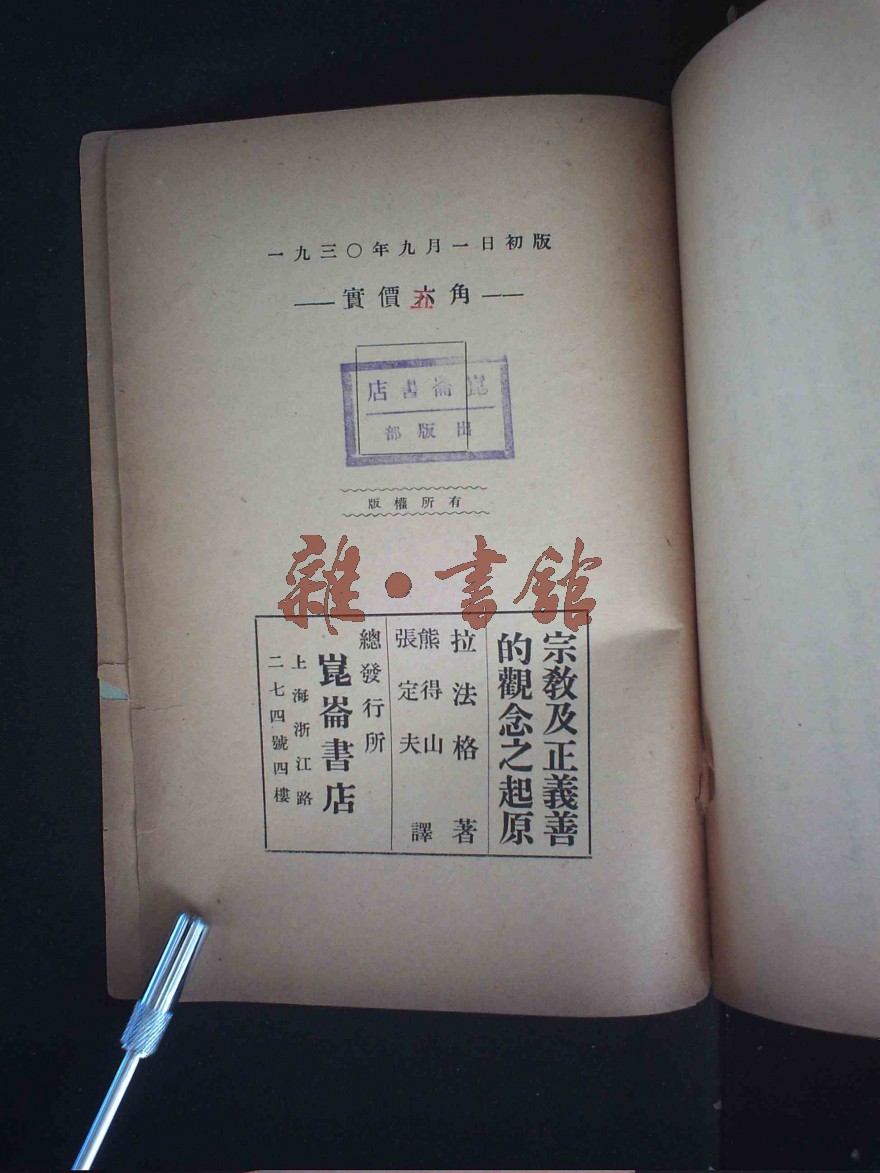 一九三〇年九月一日初版
實價五角
崑崙書店
出版部
版權所有
雜・書館
宗教及正義善
的觀念之起原
拉法格 著
熊得山
張定夫 譯
總發行所
崑崙書店
上海浙江路
二七四號四樓